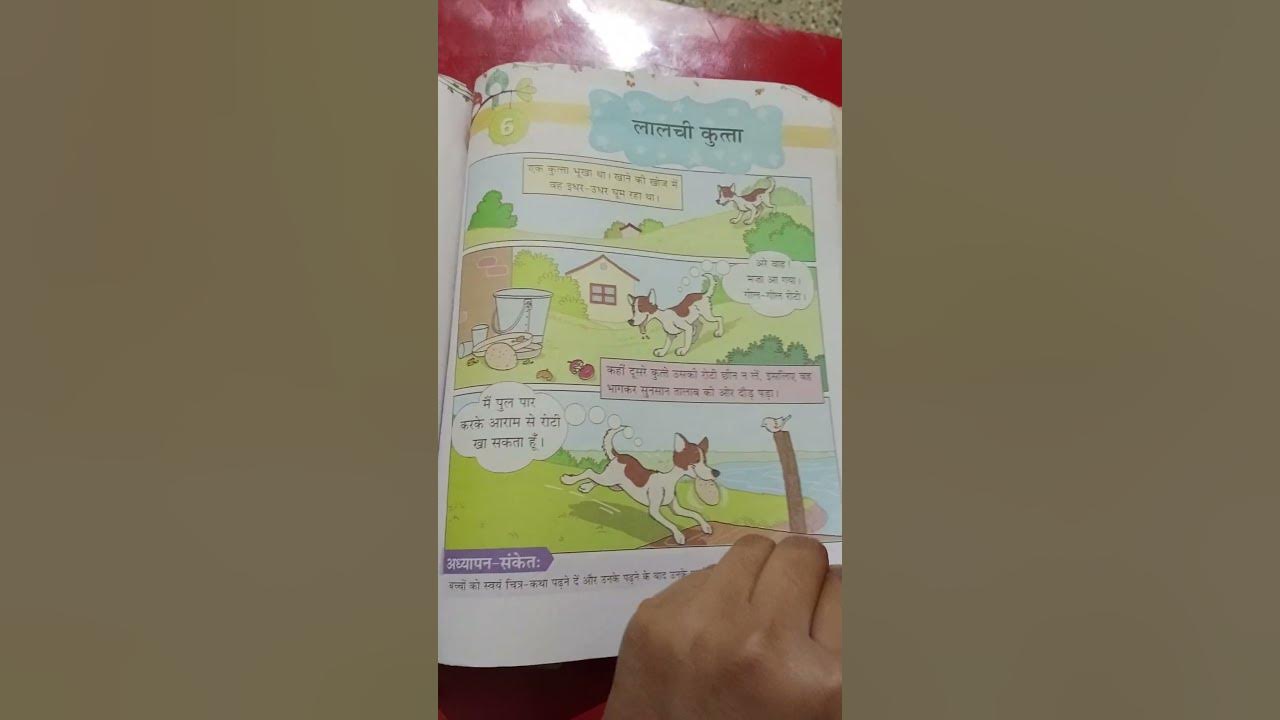 6
लालची कुत्ता
एक कुत्ता भूखा था। खाने की खोज में
वह इधर-उधर घूम रहा था।
अरे वाह!
मज़ा आ गया।
गोल-गोल रोटी।
कहीं दूसरे कुत्ते उसकी रोटी छीन न लें, इसलिए वह
भागकर सुनसान तालाब की ओर दौड़ पड़ा।
मैं पुल पार
करके आराम से रोटी
खा सकता हूँ।
अध्यापन-संकेतः
बच्चों को स्वयं चित्र-कथा पढ़ने दें और उनके पढ़ने के बाद उनके